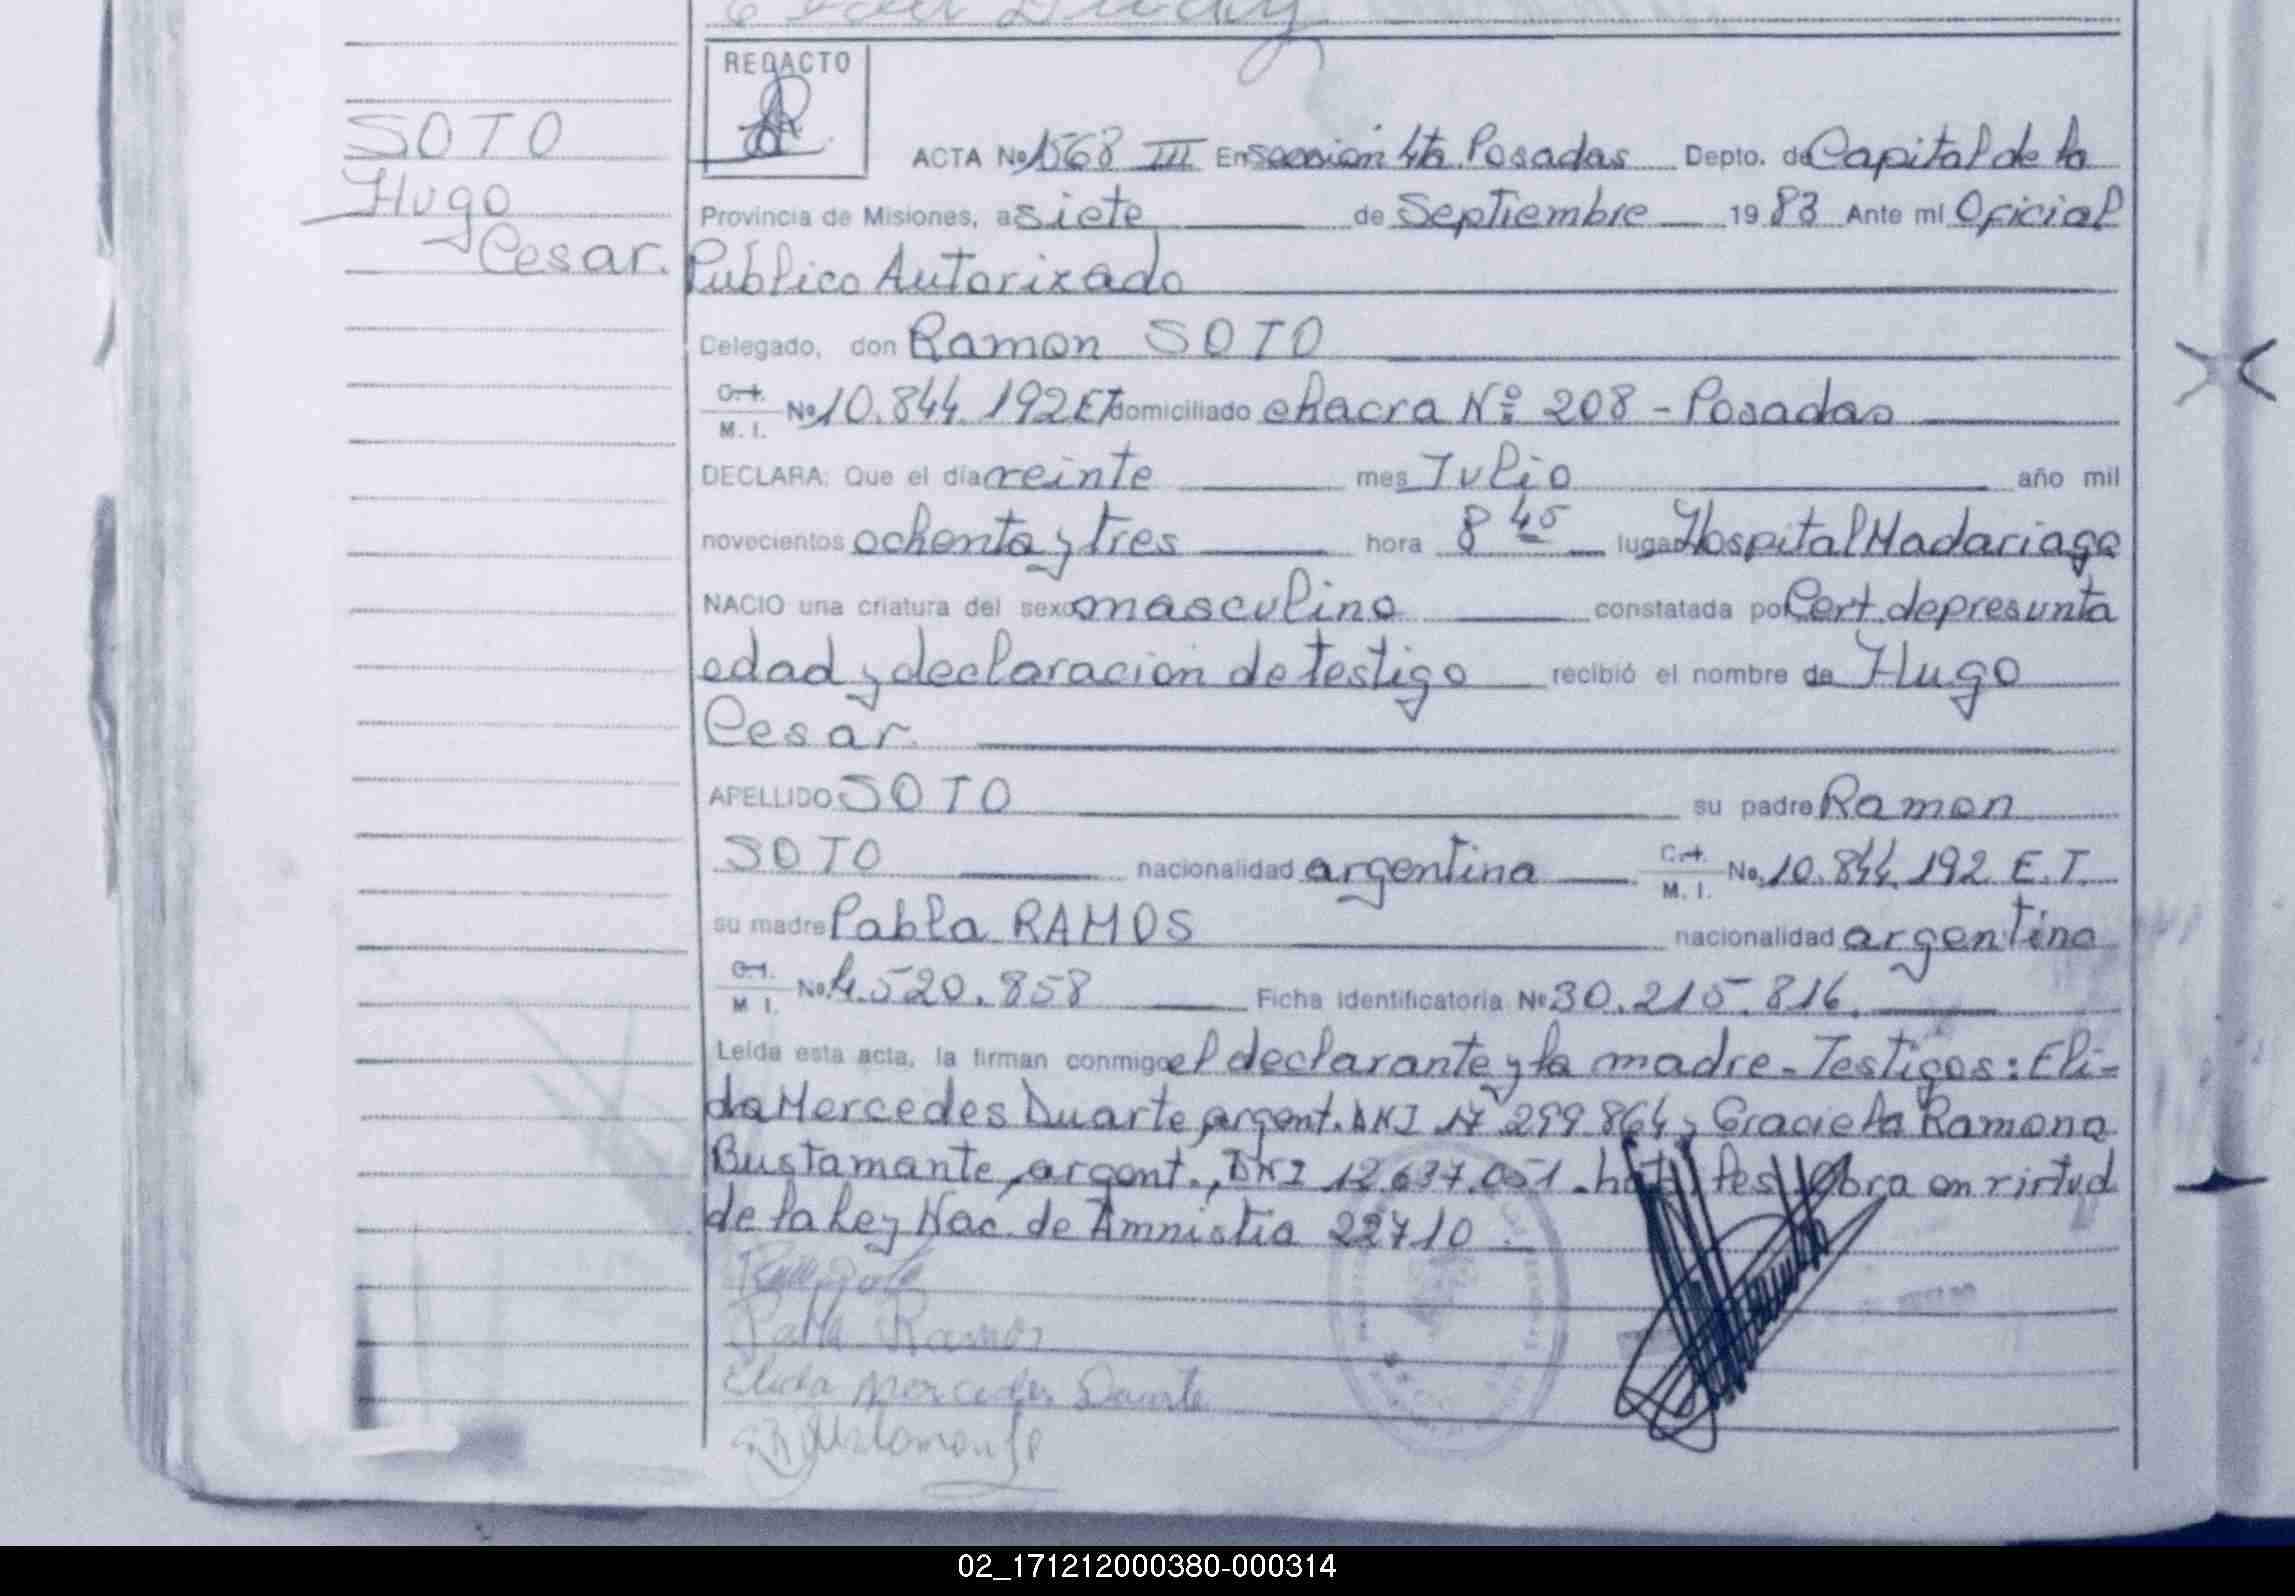 REDACTO
SOTO
Hugo
Cesar.
ACTA Nº 1568 III En sección 4ta Posadas Depto. de Capital de la
Provincia de Misiones, a siete de Septiembre 1983 Ante mi Oficial
Público Autorizado
Delegado, don Ramon SOTO
C.I. M. I. Nº 10.844.192 ET domiciliado chacra Nº 208 - Posadas
DECLARA: Que el día veinte mes Julio año mil
novecientos ochenta y tres hora 8 45 lugar Hospital Madariaga
NACIO una criatura del sexo masculino constatada por Cert. de presunta
edad y declaración de testigo recibió el nombre de Hugo
Cesar.
APELLIDO SOTO su padre Ramon
SOTO nacionalidad argentina C.I. M. I. No. 10.844.192 E.T.
su madre Pabla RAMOS nacionalidad argentina
C.I. M I. No. 4.520.858 Ficha identificatoria Nº 30.215.816.
Leída esta acta, la firman conmigo el declarante y la madre - Testigos: Eli=
da Mercedes Duarte argent. DNI 17 299 864 y Graciela Ramona
Bustamante, argent., DNI 12.637.051 - obra en virtud
de la Ley Nac. de Amnistia 22710.
Pabla Ramos
Elida Mercedes Duarte
02_171212000380-000314